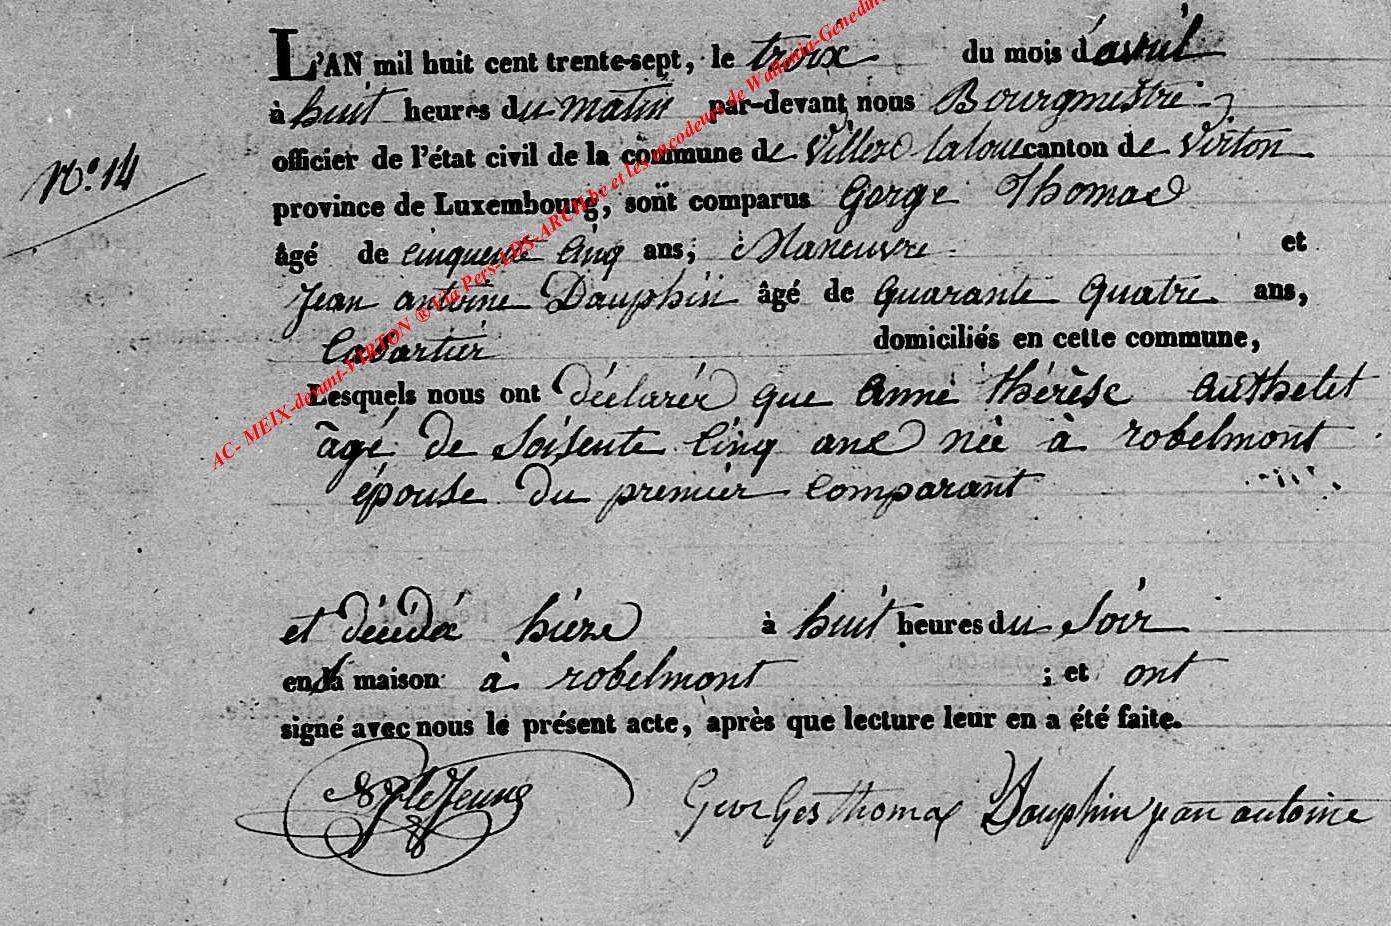 L'AN mil huit cent trente-sept, le troix du mois d'avril
à huit heures du matin par-devant nous Bourgmestre
officier de l'état civil de la commune de Villers laloue canton de Virton
N.° 14
province de Luxembourg, sont comparus Gorge Thomas
âgé de cinquente cinq ans, Maneuvre et
Jean antoine Dauphin âgé de quarante quatre ans,
Cabartier domiciliés en cette commune,
Lesquels nous ont déclarér que Anne thérèse authelet
âgé de soisente cinq ans née à robelmont
épouse du premier comparant
et décédé hiere à huit heures du soir
en sa maison à robelmont ; et ont
signé avec nous le présent acte, après que lecture leur en a été faite.
LeJeune Georges thomas Dauphin jean antoine
AC- MEIX-devant-VIRTON ® Via Pers-LDS-ARCH.be et les encodeurs de Wallonia-Genedinter